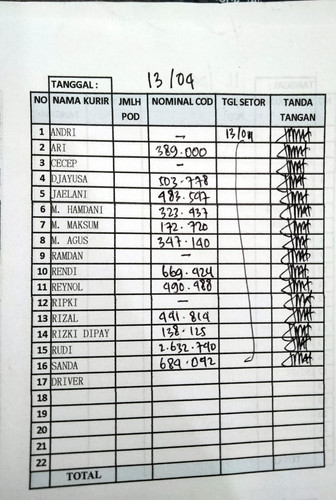 TANGGAL : 13/04
NO NAMA KURIR JMLH POD NOMINAL COD TGL SETOR TANDA TANGAN
1 ANDRI — 13/04
2 ARI 389.000
3 CECEP —
4 DJAYUSA 503.778
5 JAELANI 483.547
6 M. HAMDANI 323.937
7 M. MAKSUM 172.720
8 M. AGUS 347.140
9 RAMDAN —
10 RENDI 669.424
11 REYNOL 490.988
12 RIPKI —
13 RIZAL 441.814
14 RIZKI DIPAY 138.125
15 RUDI 2.632.790
16 SANDA 684.092
17 DRIVER
18
19
20
21
22
TOTAL